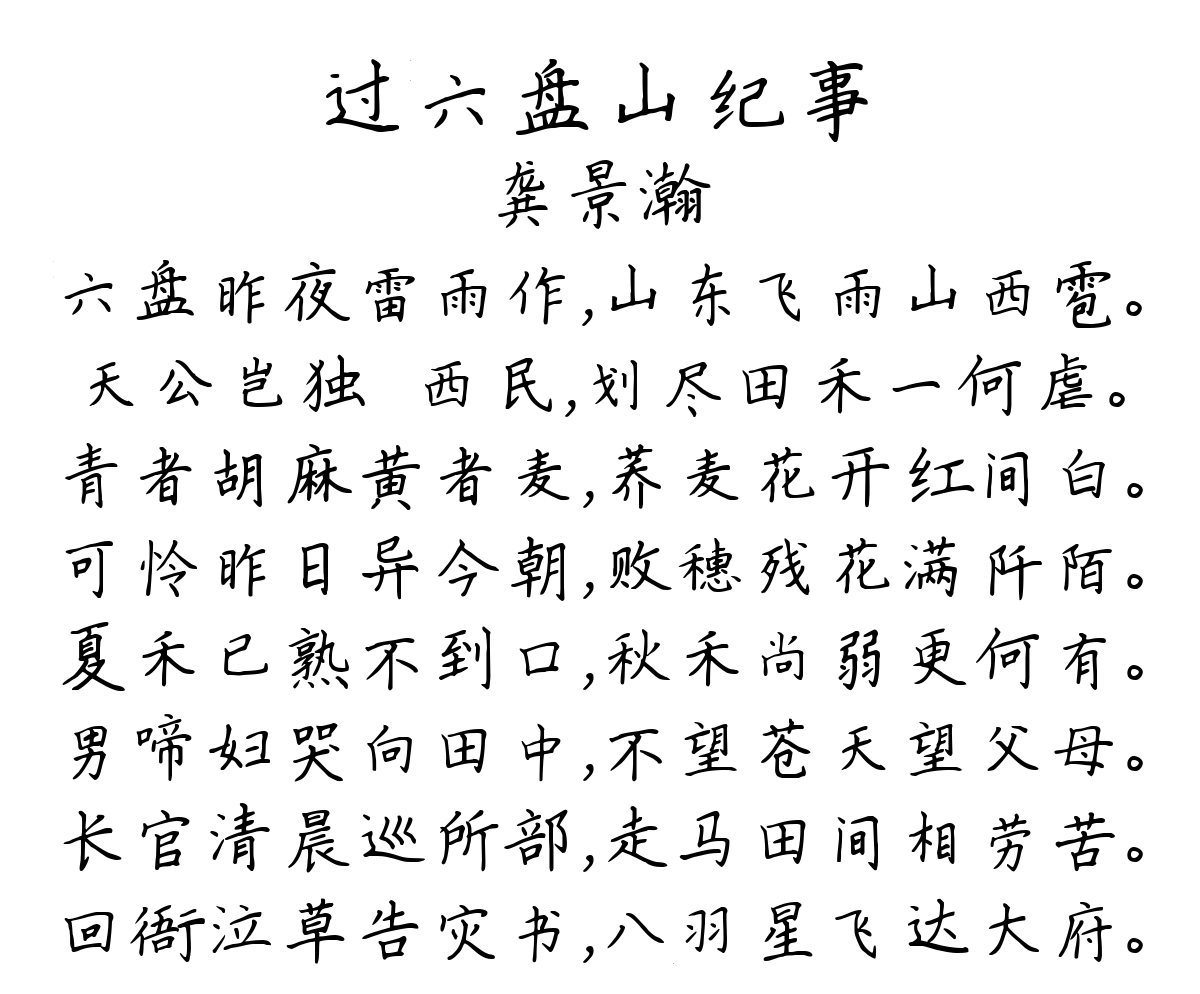 过六盘山纪事
龚景瀚
六盘昨夜雷雨作,山东飞雨山西雹。
天公岂独 西民,划尽田禾一何虐。
青者胡麻黄者麦,荞麦花开红间白。
可怜昨日异今朝,败穗残花满阡陌。
夏禾已熟不到口,秋禾尚弱更何有。
男啼妇哭向田中,不望苍天望父母。
长官清晨巡所部,走马田间相劳苦。
回衙泣草告灾书,八羽星飞达大府。